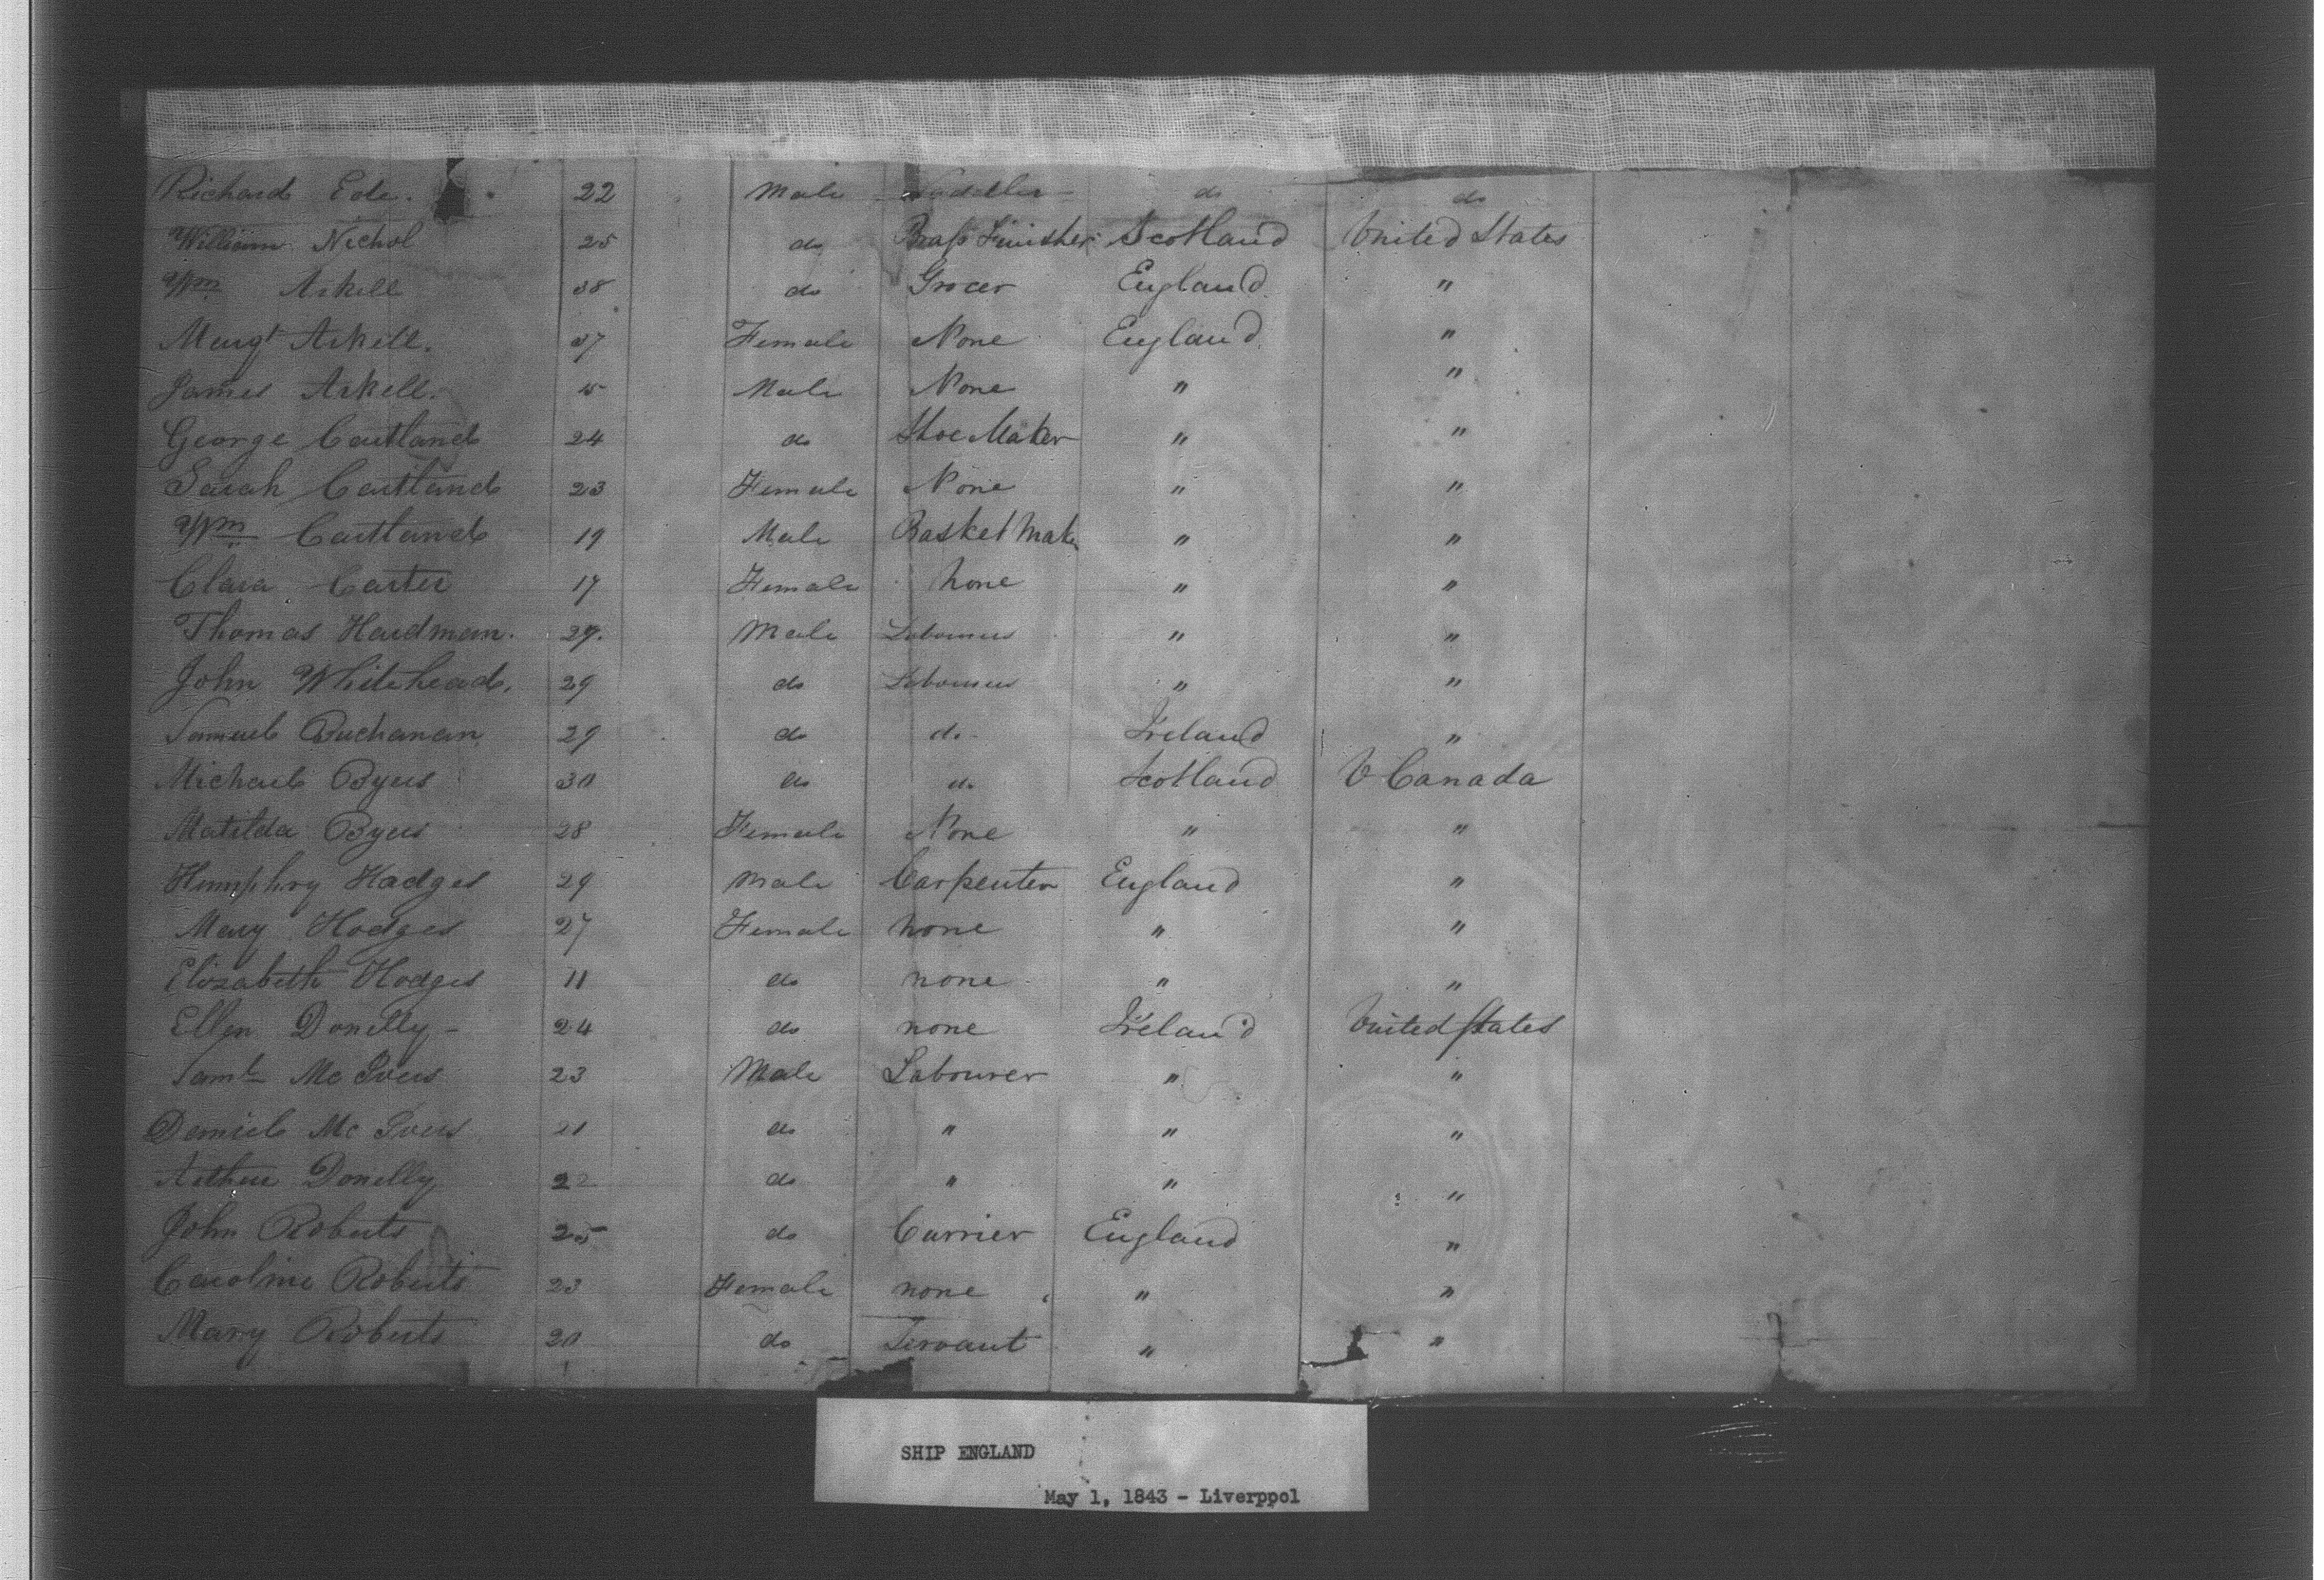 Richard Ede. 22 Male Saddler do do
William Nichol 25 do Brass Finisher Scotland United States
Wm Arkell 38 do Grocer England "
Margt Arkell. 37 Female None England "
James Arkell. Male None " "
George Cartland 24 do Shoe Maker " "
Sarah Cartland 23 Female None " "
Wm Cartland 19 Male Basket Make " "
Clara Carter 17 Female None " "
Thomas Hardman. 29. Male Labourer " "
John Whitehead. 29 do Labourer " "
Samuel Buchanan 29 do do Ireland "
Michael Byers 30 do do Scotland U Canada
Matilda Byers 28 Female None " "
Humphry Hodges 29 Male Carpenter England "
Mary Hodges 27 Female none " "
Elizabeth Hodges 11 do none " "
Ellen Donelly - 24 do none Ireland United States
Saml Mc Ivers 23 Male Labourer " "
Daniel Mc Ivers 21 do " " "
Arthur Donelly 22 do " " "
John Roberts 25 do Currier England "
Caroline Roberts 23 Female none " "
Mary Roberts 20 do Servant " "
SHIP ENGLAND
May 1, 1843 - Liverppol